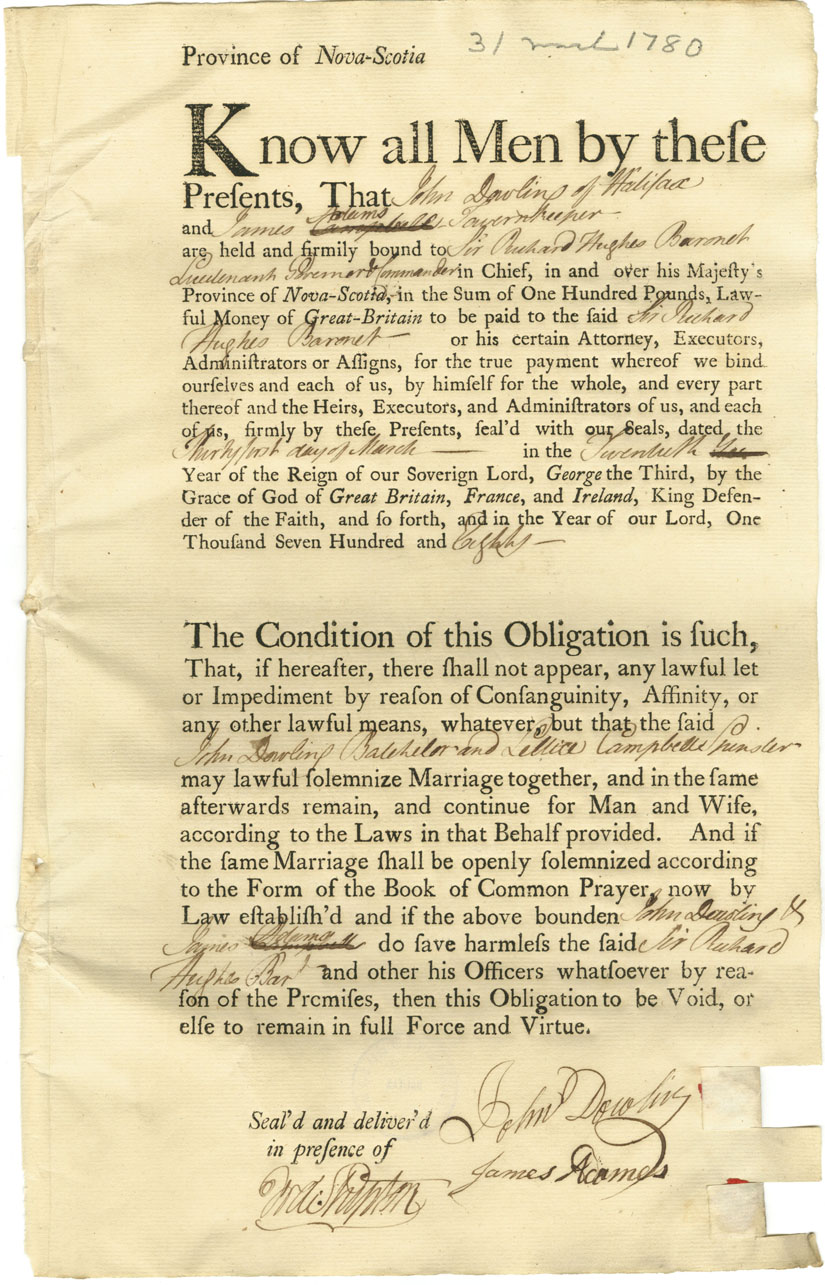 31 March 1780
Province of Nova-Scotia
Know all Men by theſe
Preſents, That John Dowling of Halifax
and James Adams Campbell Tavernkeeper
are held and firmily bound to Sir Richard Hughes Baronet
Lieutenant Governor & Commander in Chief, in and over his Majeſty's
Province of Nova-Scotia, in the Sum of One Hundred Pounds, Law-
ful Money of Great-Britain to be paid to the ſaid Sir Richard
Hughes Baronet or his certain Attorney, Executors,
Adminiſtrators or Aſſigns, for the true payment whereof we bind
ourſelves and each of us, by himſelf for the whole, and every part
thereof and the Heirs, Executors, and Adminiſtrators of us, and each
of us, firmly by theſe Preſents, ſeal'd with our Seals, dated the
Thirty first day of March in the Twentieth
Year of the Reign of our Soverign Lord, George the Third, by the
Grace of God of Great Britain, France, and Ireland, King Defen-
der of the Faith, and ſo forth, and in the Year of our Lord, One
Thouſand Seven Hundred and Eighty
The Condition of this Obligation is ſuch,
That, if hereafter, there ſhall not appear, any lawful let
or Impediment by reaſon of Conſanguinity, Affinity, or
any other lawful means, whatever, but that the ſaid
John Dowling Batchelor and Lettice Campbell Spinster
may lawful ſolemnize Marriage together, and in the ſame
afterwards remain, and continue for Man and Wife,
according to the Laws in that Behalf provided. And if
the ſame Marriage ſhall be openly ſolemnized according
to the Form of the Book of Common Prayer, now by
Law eſtabliſh'd and if the above bounden John Dowling &
James Adams do ſave harmleſs the ſaid Sir Richard
Hughes Bart and other his Officers whatſoever by rea-
ſon of the Premiſes, then this Obligation to be Void, or
elſe to remain in full Force and Virtue.
Seal'd and deliver'd
in preſence of
John Dowling
James Adams